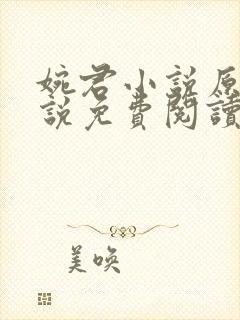 婉君小说原
說免費閱讀
美喚